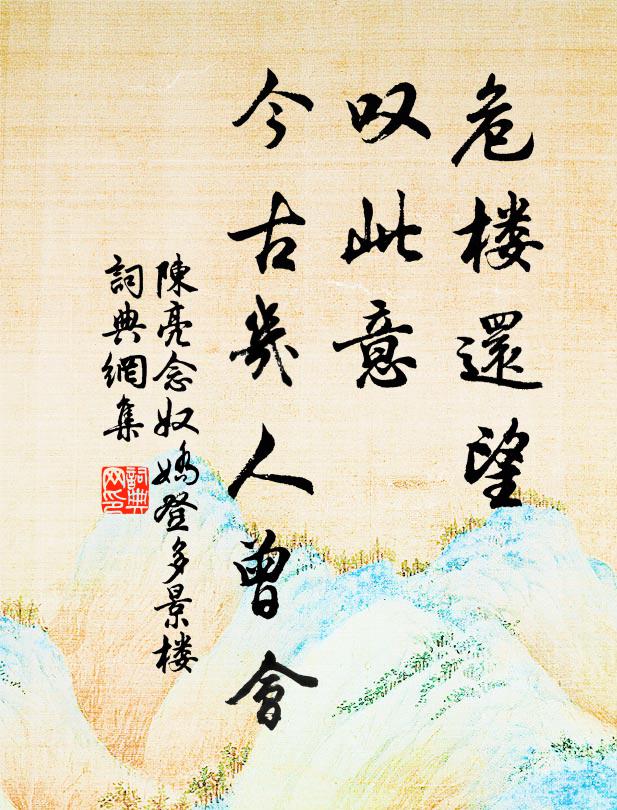 危楼還望
叹此意
今古幾人曾會
陳亮念奴嬌登多景楼
詞典網集
詞典网印